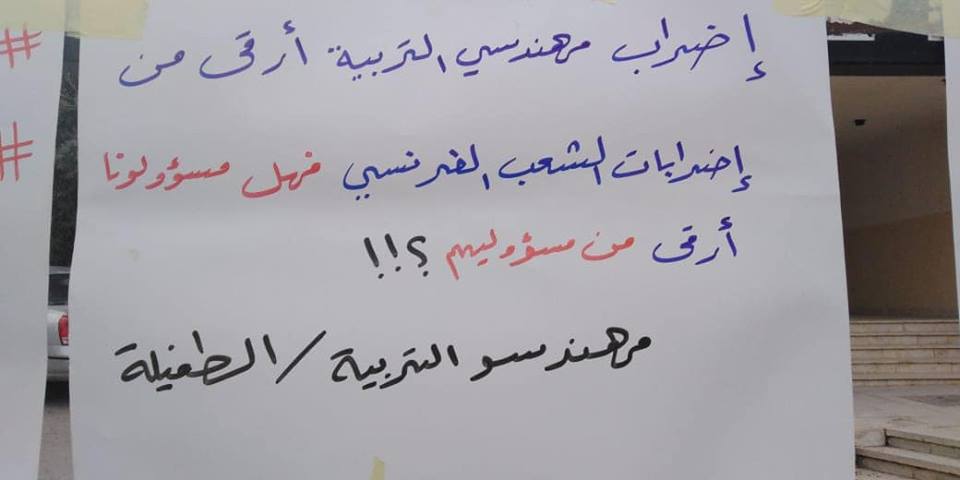 إضراب مهندسي التربية أرقى من
إضرابات الشعب الفرنسي فهل مسؤولونا
أرقى من مسؤوليهم ؟!!
مهندسو التربية / الطفيلة
#
#